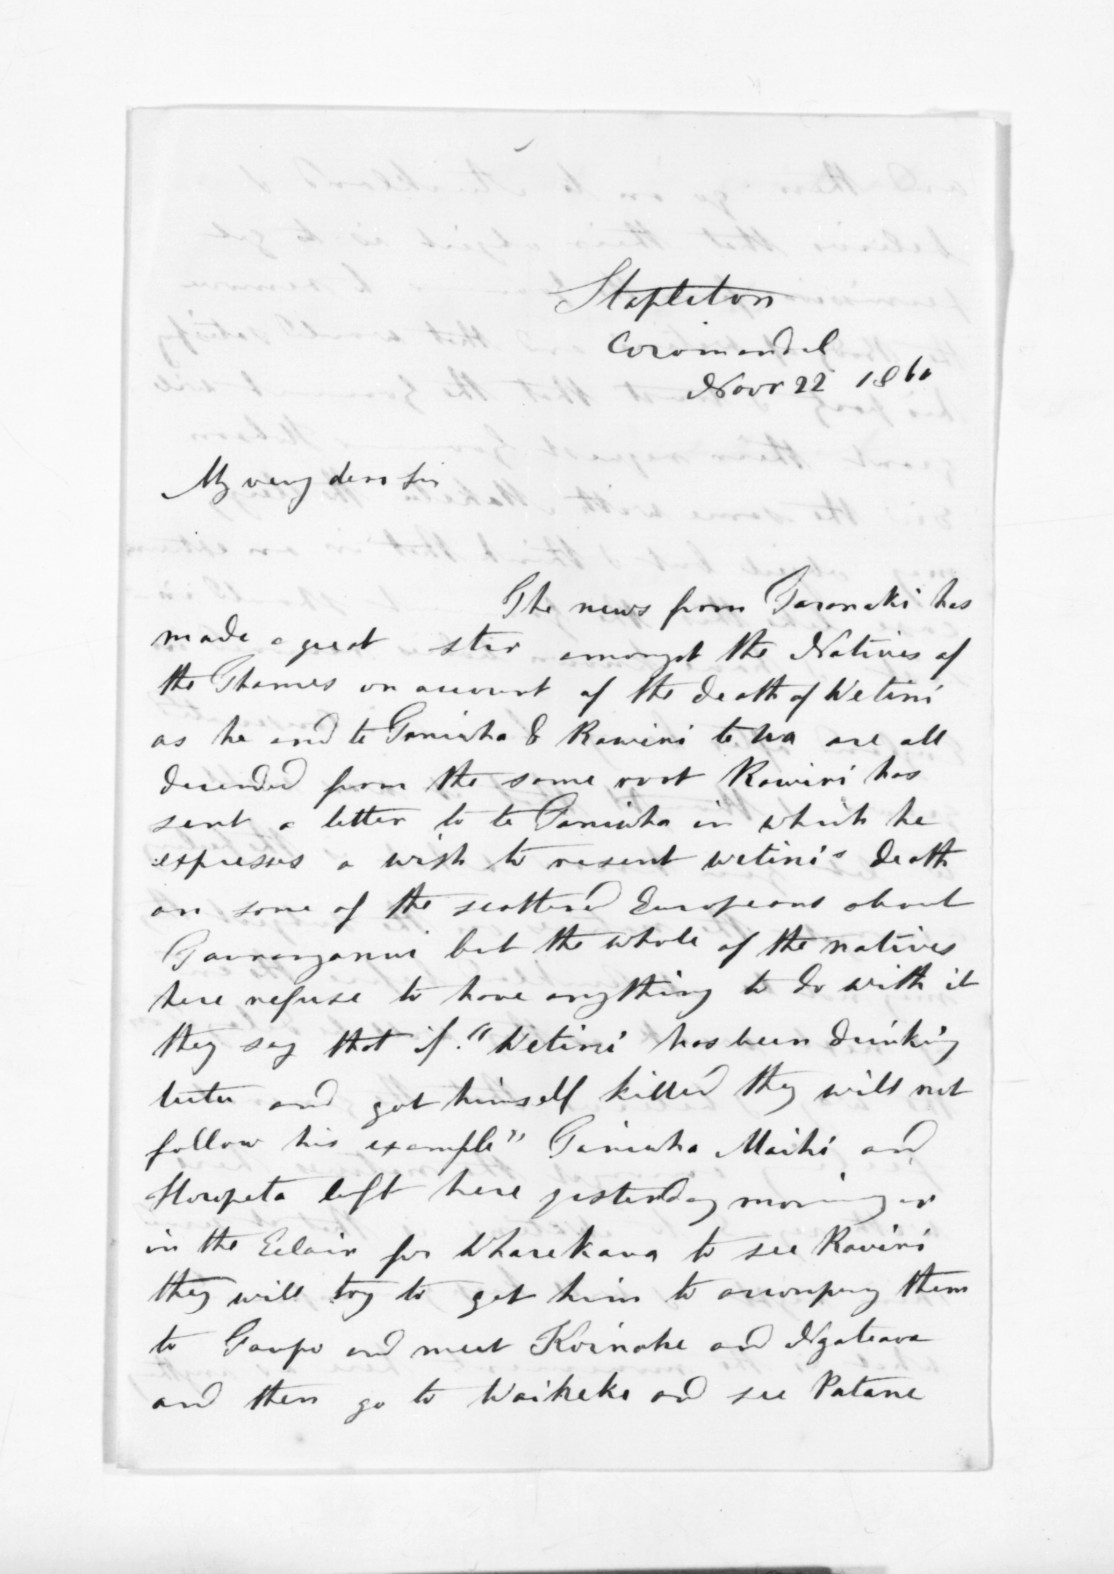 Stapleton
Coromandel
Novr 22 1860
My very dear Sir
The news from Taranaki has
made a great stir amongst the Natives of
the Thames on account of the death of Wetini
as he and te Taniwha & Rawiri te ua are all
decended from the same root Rawiri has
sent a letter to te Taniwha in which he
expresses a wish to resent wetini's death
on some of the scattered Europeans about
but the whole of the natives
here refuse to have anything to do with it
they say that if "Wetini has been drinking
tutu and got himself killed they will not
follow his example" Taniwha Maihi and
Horopeta left here yesterday morning
in the Eclair for Wharekawa to see Rawiri
they will try to get him to accompany them
to Taupo and meet and
and then go to and see Patane